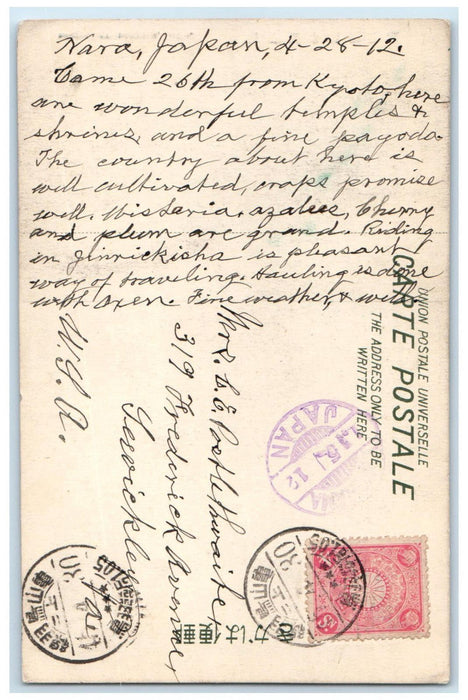 Nara, Japan, 4-28-12.
Came 26th from Kyoto, here
are wonderful temples &
shrines, and a fine pagoda.
The country about here is
well cultivated, crops promise
well. Wistaria, azaleas, Cherry
and plum are grand. Riding
in Jinrickisha is pleasant
way of traveling. Hauling is done
with Oxen. Fine weather, & well.
UNION POSTALE UNIVERSELLE
CARTE POSTALE
THE ADDRESS ONLY TO BE
WRITTEN HERE
Mrs. C. E. Postlethwaite,
319 Frederick Avenue,
Sewickley
Pa.
U.S.A.
JAPAN
きがは便郵